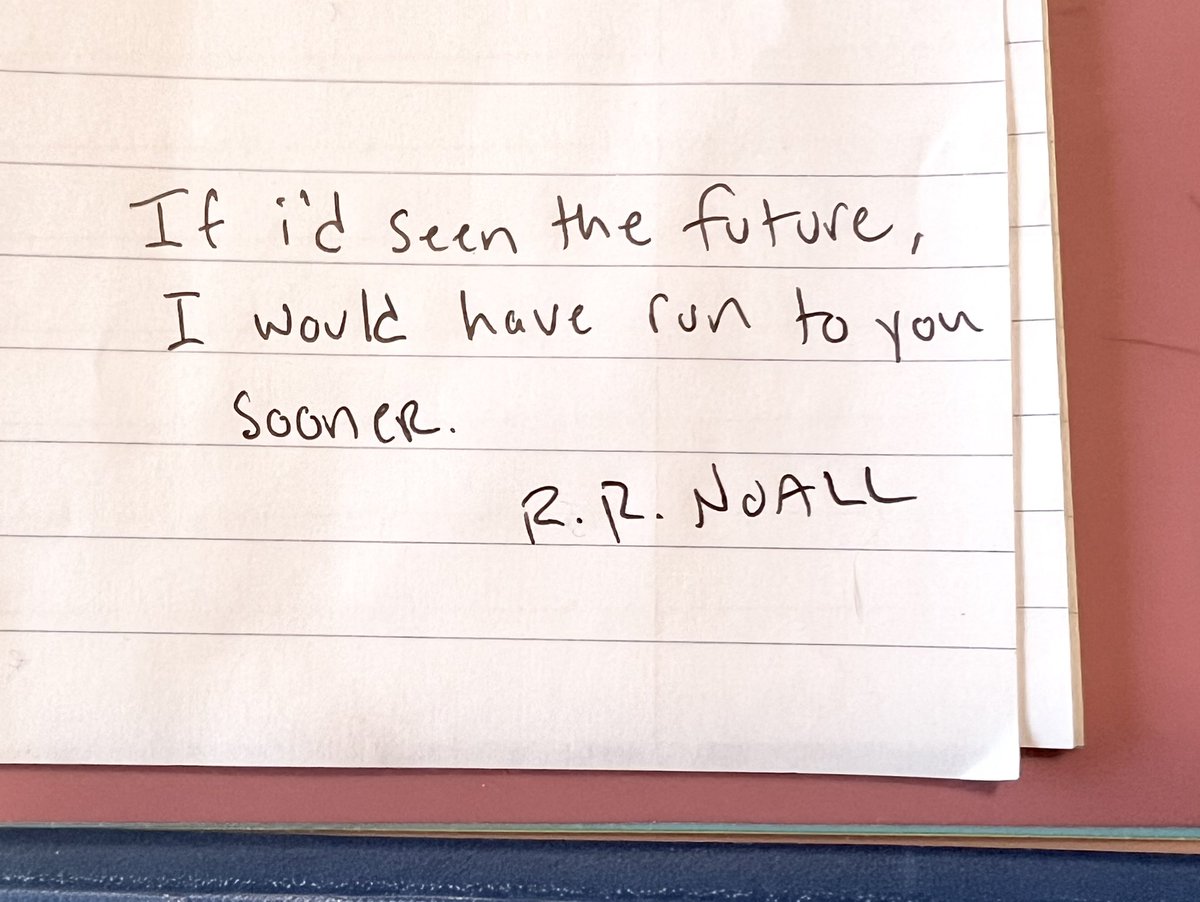 If i'd seen the future,
I would have run to you
sooner.
R.R. NOALL